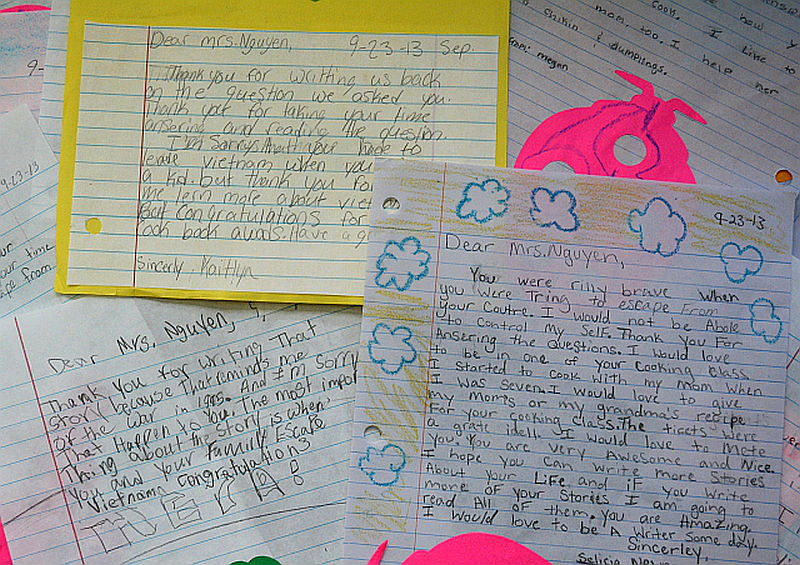 Dear mrs. Nguyen, 9-23-13 Sep.
Thank you for writting us back
on the question we asked you.
thank you for taking your time
ansering and reading the question
I'm Sorry that your hade to
leave vietnam when you
a kid. but thank you for
me lern more about viet
But Congratulations for
cook back awads. Have a g
Sincerly, Kaitlyn
Cook. I like to
mom, too. I help her
chikin & dumplings.
From: megan
9-23-13
our time
pe from
Dear Mrs. Nguyen,
Thank You for writing That
story because That reminds me
of the war in 1945. And I'm Sorry
That Happen to You. The most impor
Thing about the story is when
You and Your Family Escape
Vietnam. Congratulations
9-23-13
Dear Mrs. Nguyen,
You were rilly brave when
you were Tring to escape From
Your Coutre. I would not be Abole
to control my self. Thank you For
Ansering the Questions. I would love
to be in one of your Cooking Class
I started to cook with my mom when
I was seven. I would love to give
my mom's or my grandma's recipe
For your cooking class. The ticets were
a grate idell. I would love to Mete
you. You are very Awesome and Nice.
I hope you can write more Stories
About your Life and if you write
more of your Stories I am going to
read All of them. You are Amazing.
I would love to be A Writer Some day.
Sincerley,